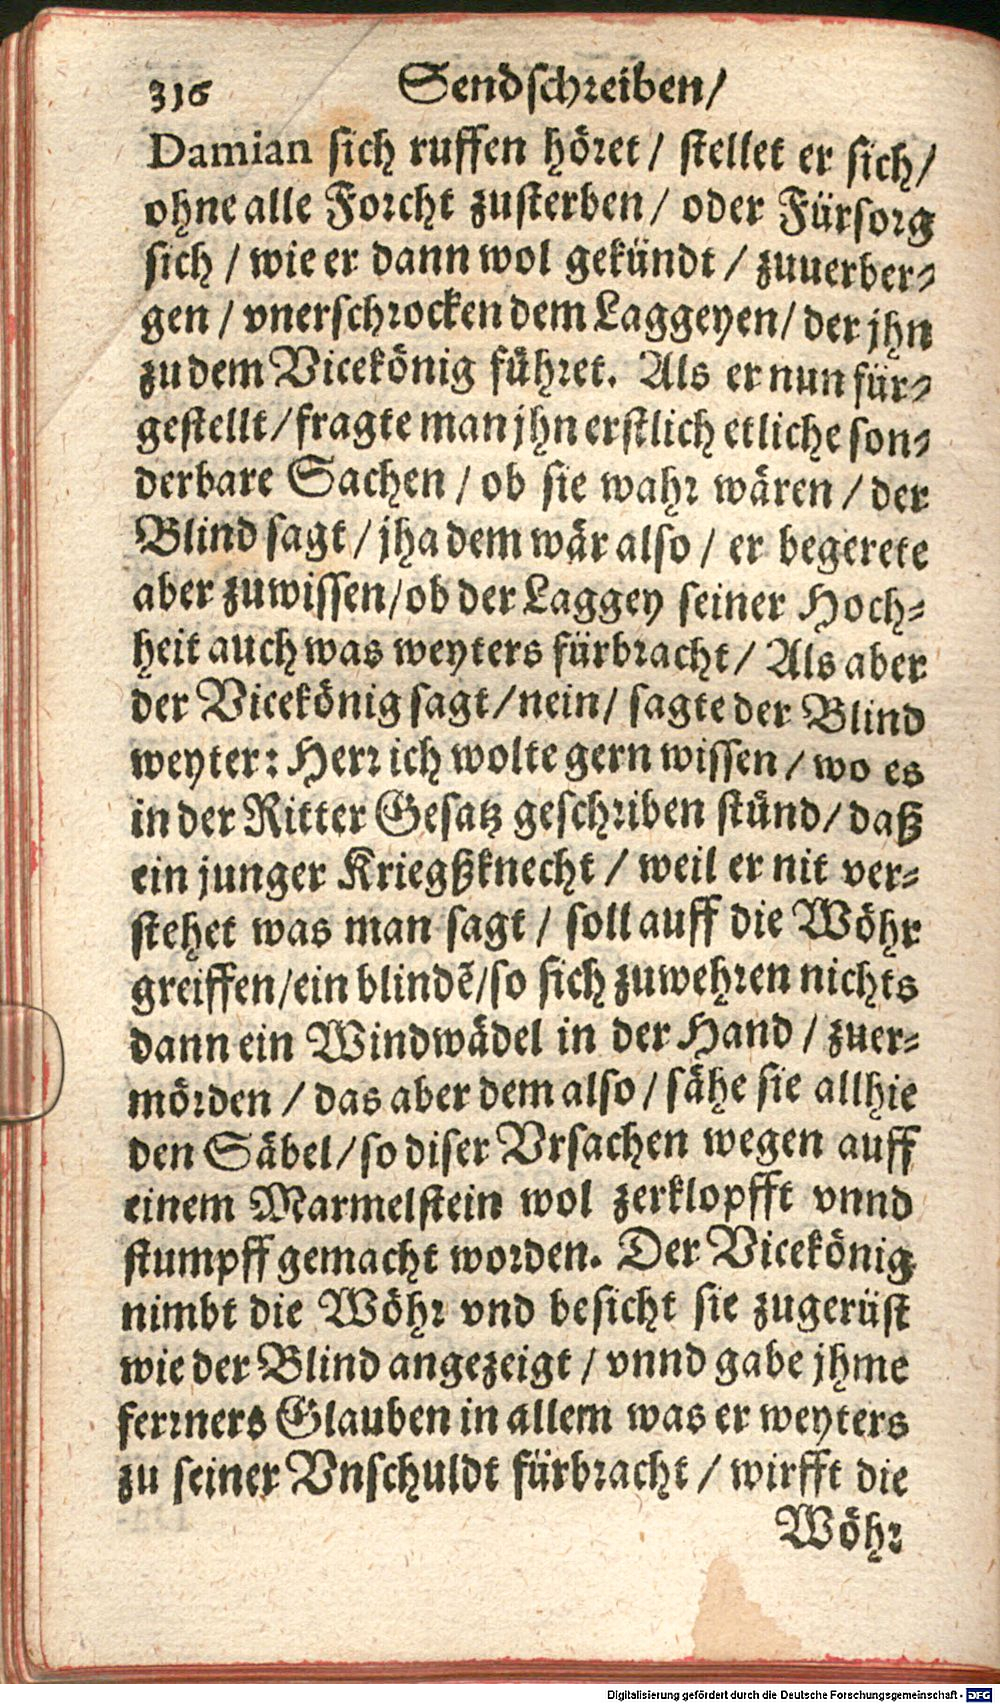 316 Sendschreiben/
Damian sich ruffen höret / stellet er sich/
ohne alle Forcht zusterben / oder Fürsorg
sich / wie er dann wol gekündt / zuuerber-
gen / vnerschrocken dem Laggeyen/ der jhn
zu dem Vicekönig führet. Als er nun für-
gestellt/fragte man jhn erstlich etliche son-
derbare Sachen / ob sie wahr wären / der
Blind sagt / jha dem wär also / er begerete
aber zuwissen/ob der Laggey seiner Hoch-
heit auch was weyters fürbracht / Als aber
der Vicekönig sagt/nein/ sagte der Blind
weyter: Herr ich wolte gern wissen / wo es
in der Ritter Gesatz geschriben stünd/ daß
ein junger Kriegßknecht / weil er nit ver-
stehet was man sagt / soll auff die Wöhr
greiffen/ein blindẽ/so sich zuwehren nichts
dann ein Windwädel in der Hand / zuer-
mörden / das aber dem also / sähe sie allhie
den Säbel/so diser Vrsachen wegen auff
einem Marmelstein wol zerklopfft vnnd
stumpff gemacht worden. Der Vicekönig
nimbt die Wöhr vnd besicht sie zugerüst
wie der Blind angezeigt / vnnd gabe jhme
ferrners Glauben in allem was er weyters
zu seiner Vnschuldt fürbracht / wirfft die
Wöhr
Digitalisierung gefördert durch die Deutsche Forschungsgemeinschaft - DFG